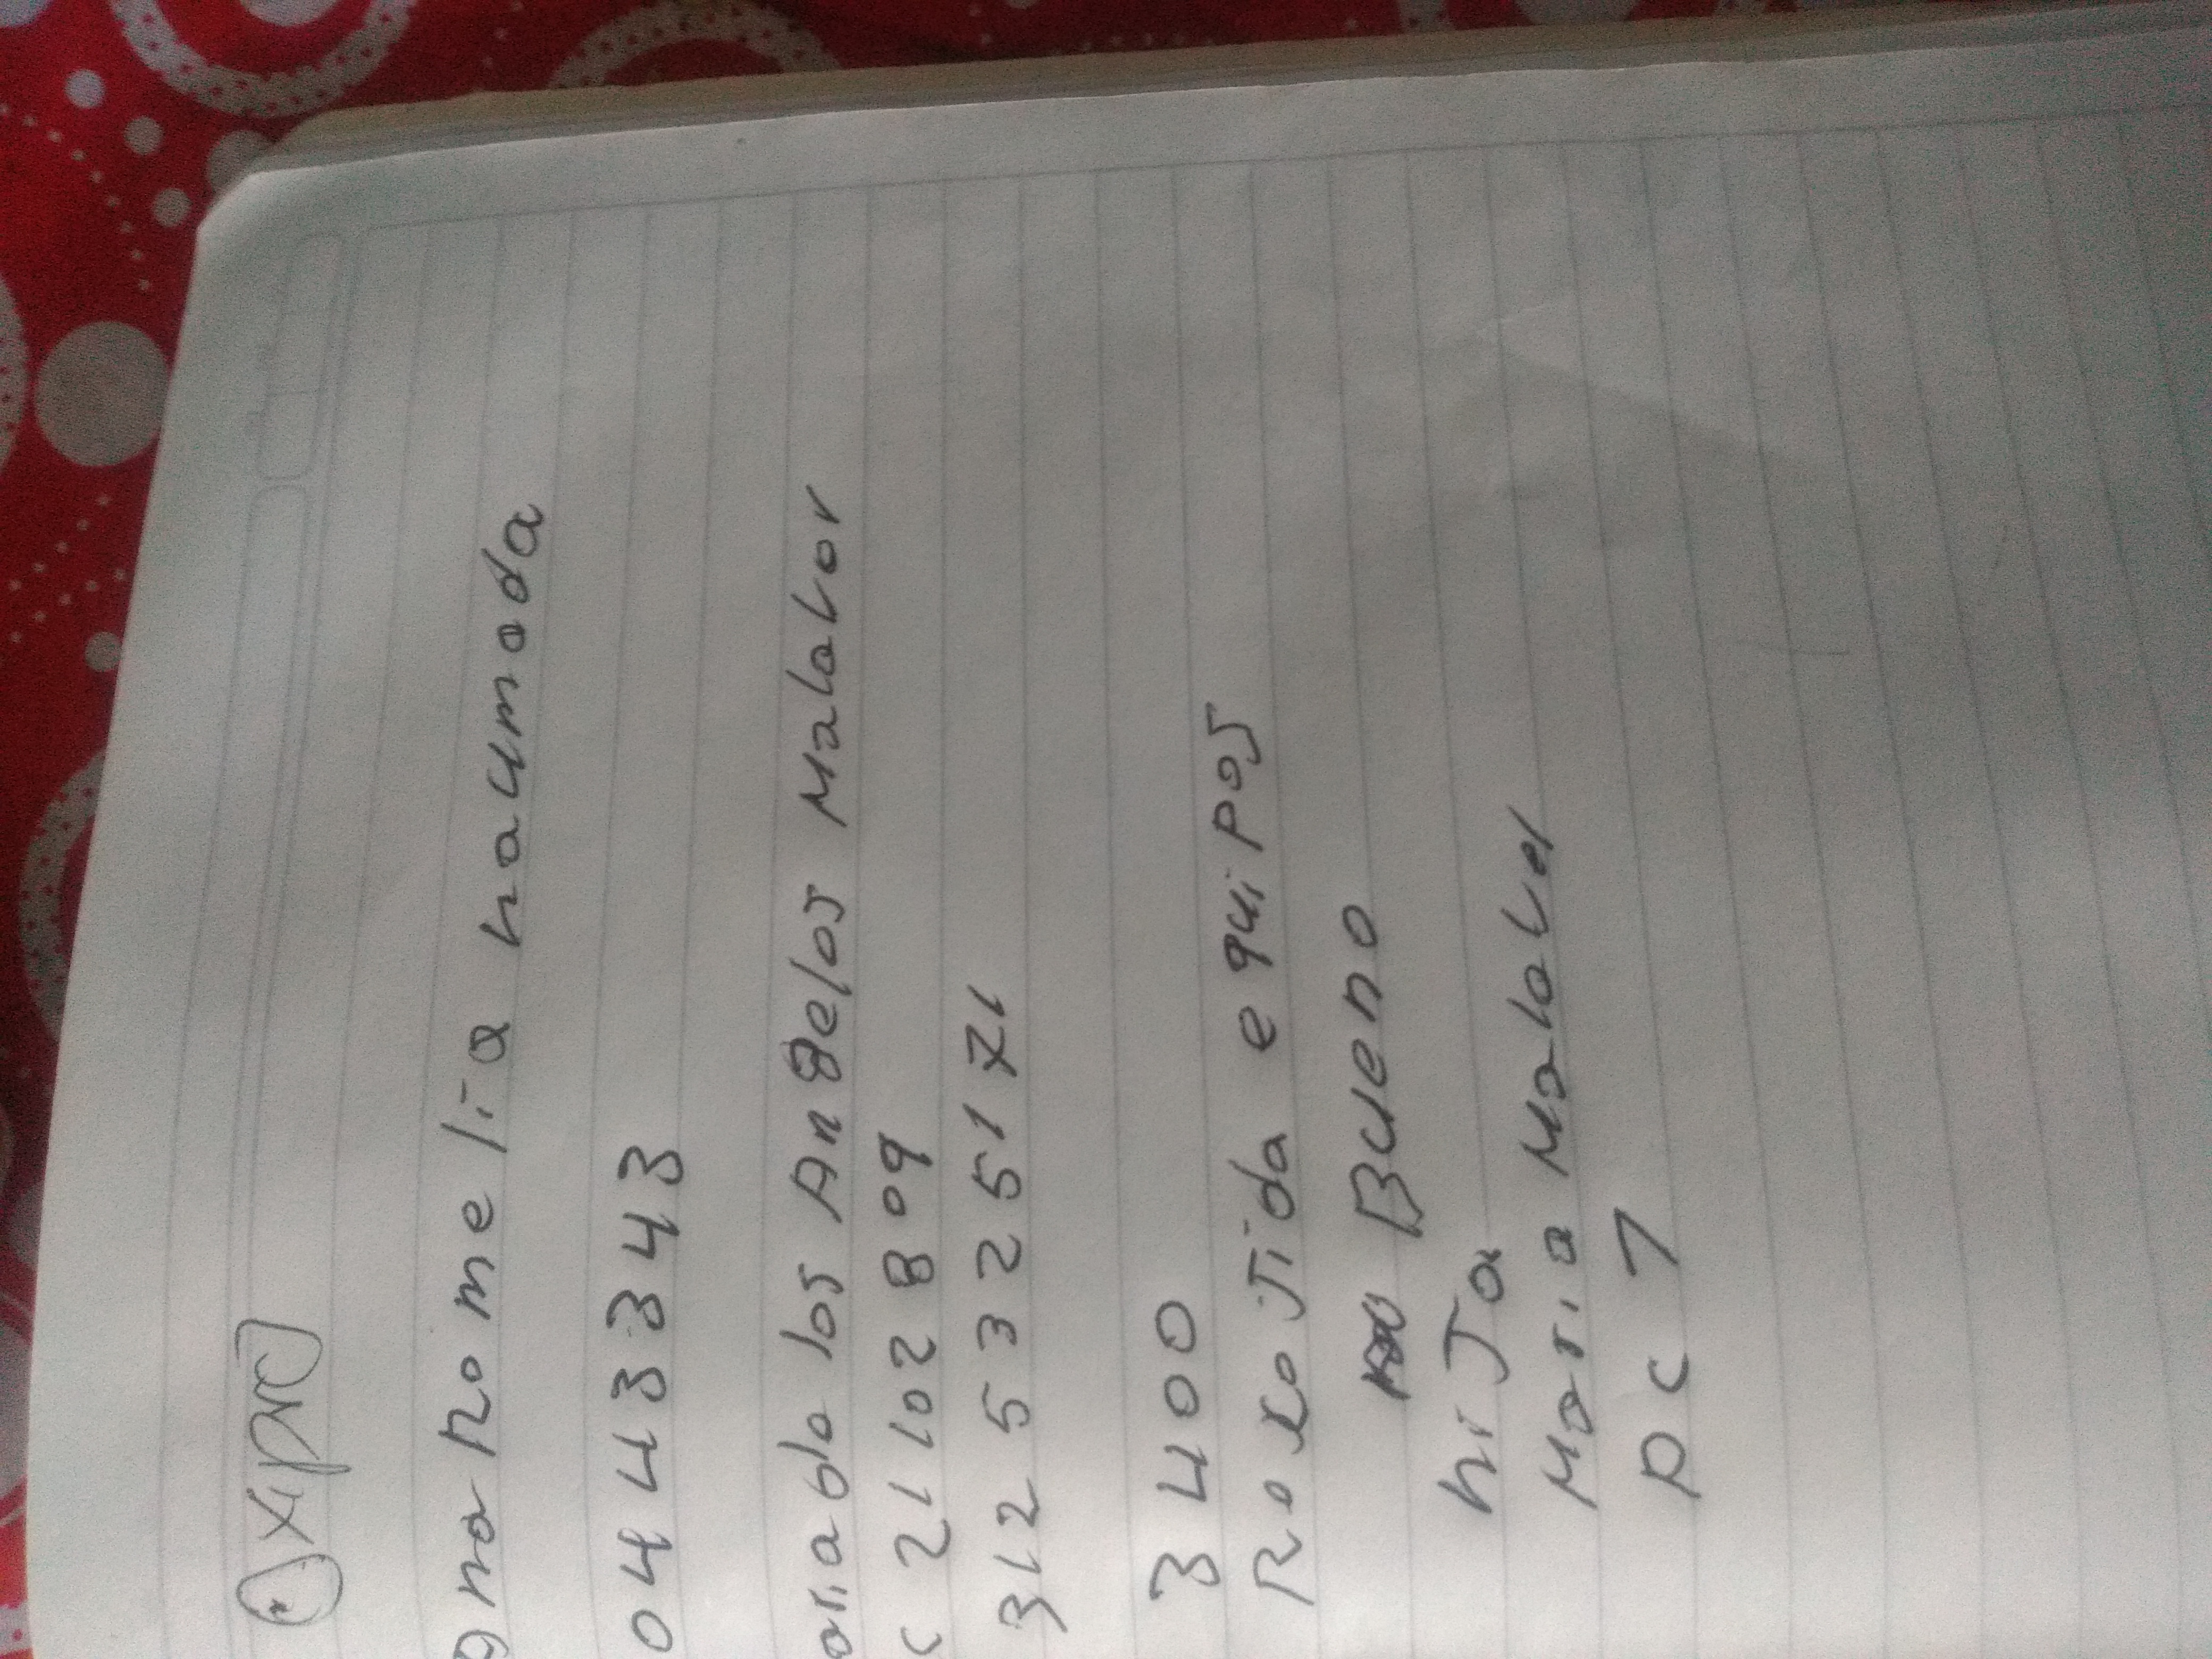 xipro
ana Romelia haumada
04433343
aria blo los Angelos Malaver
c 21102809
312 5325171
3400
Rexojida equipos
Bueno
hija
Maria Malaver
pc 7